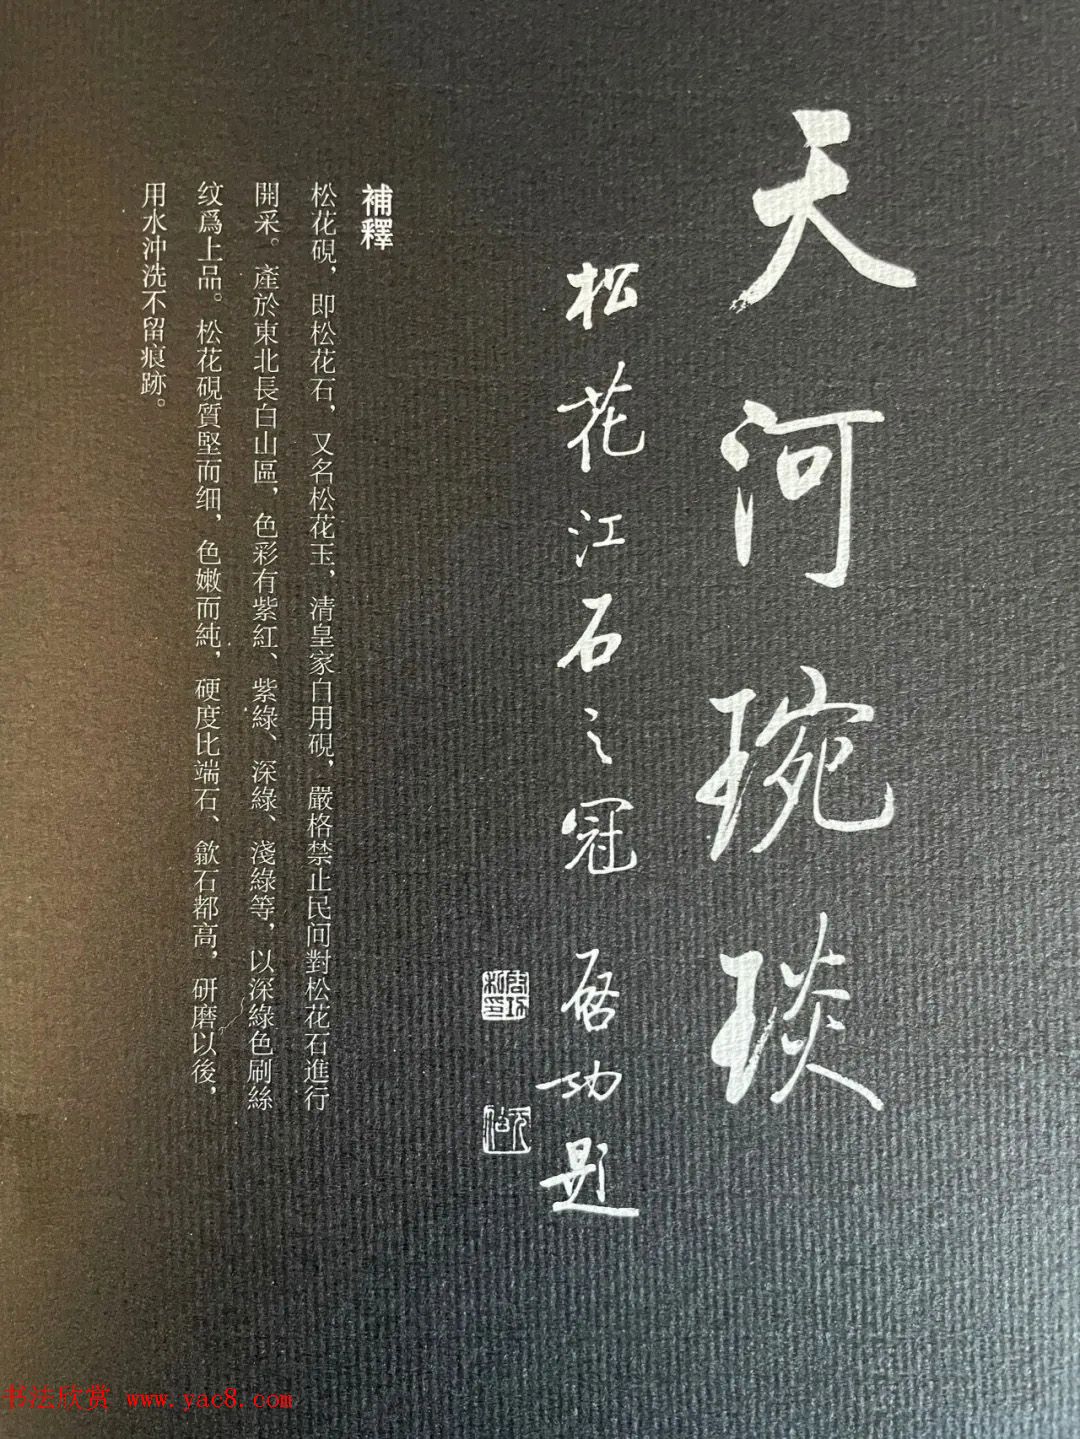 天河琬琰
松花江石之冠 启功題
補釋
松花硯，即松花石，又名松花玉，清皇家自用硯，嚴格禁止民间對松花石進行
開采。產於東北長白山區，色彩有紫紅、紫綠、深綠、淺綠等，以深綠色刷絲
纹爲上品。松花硯質堅而细，色嫩而純，硬度比端石、歙石都高，研磨以後，
用水沖洗不留痕跡。
书法欣赏 www.yac8.com